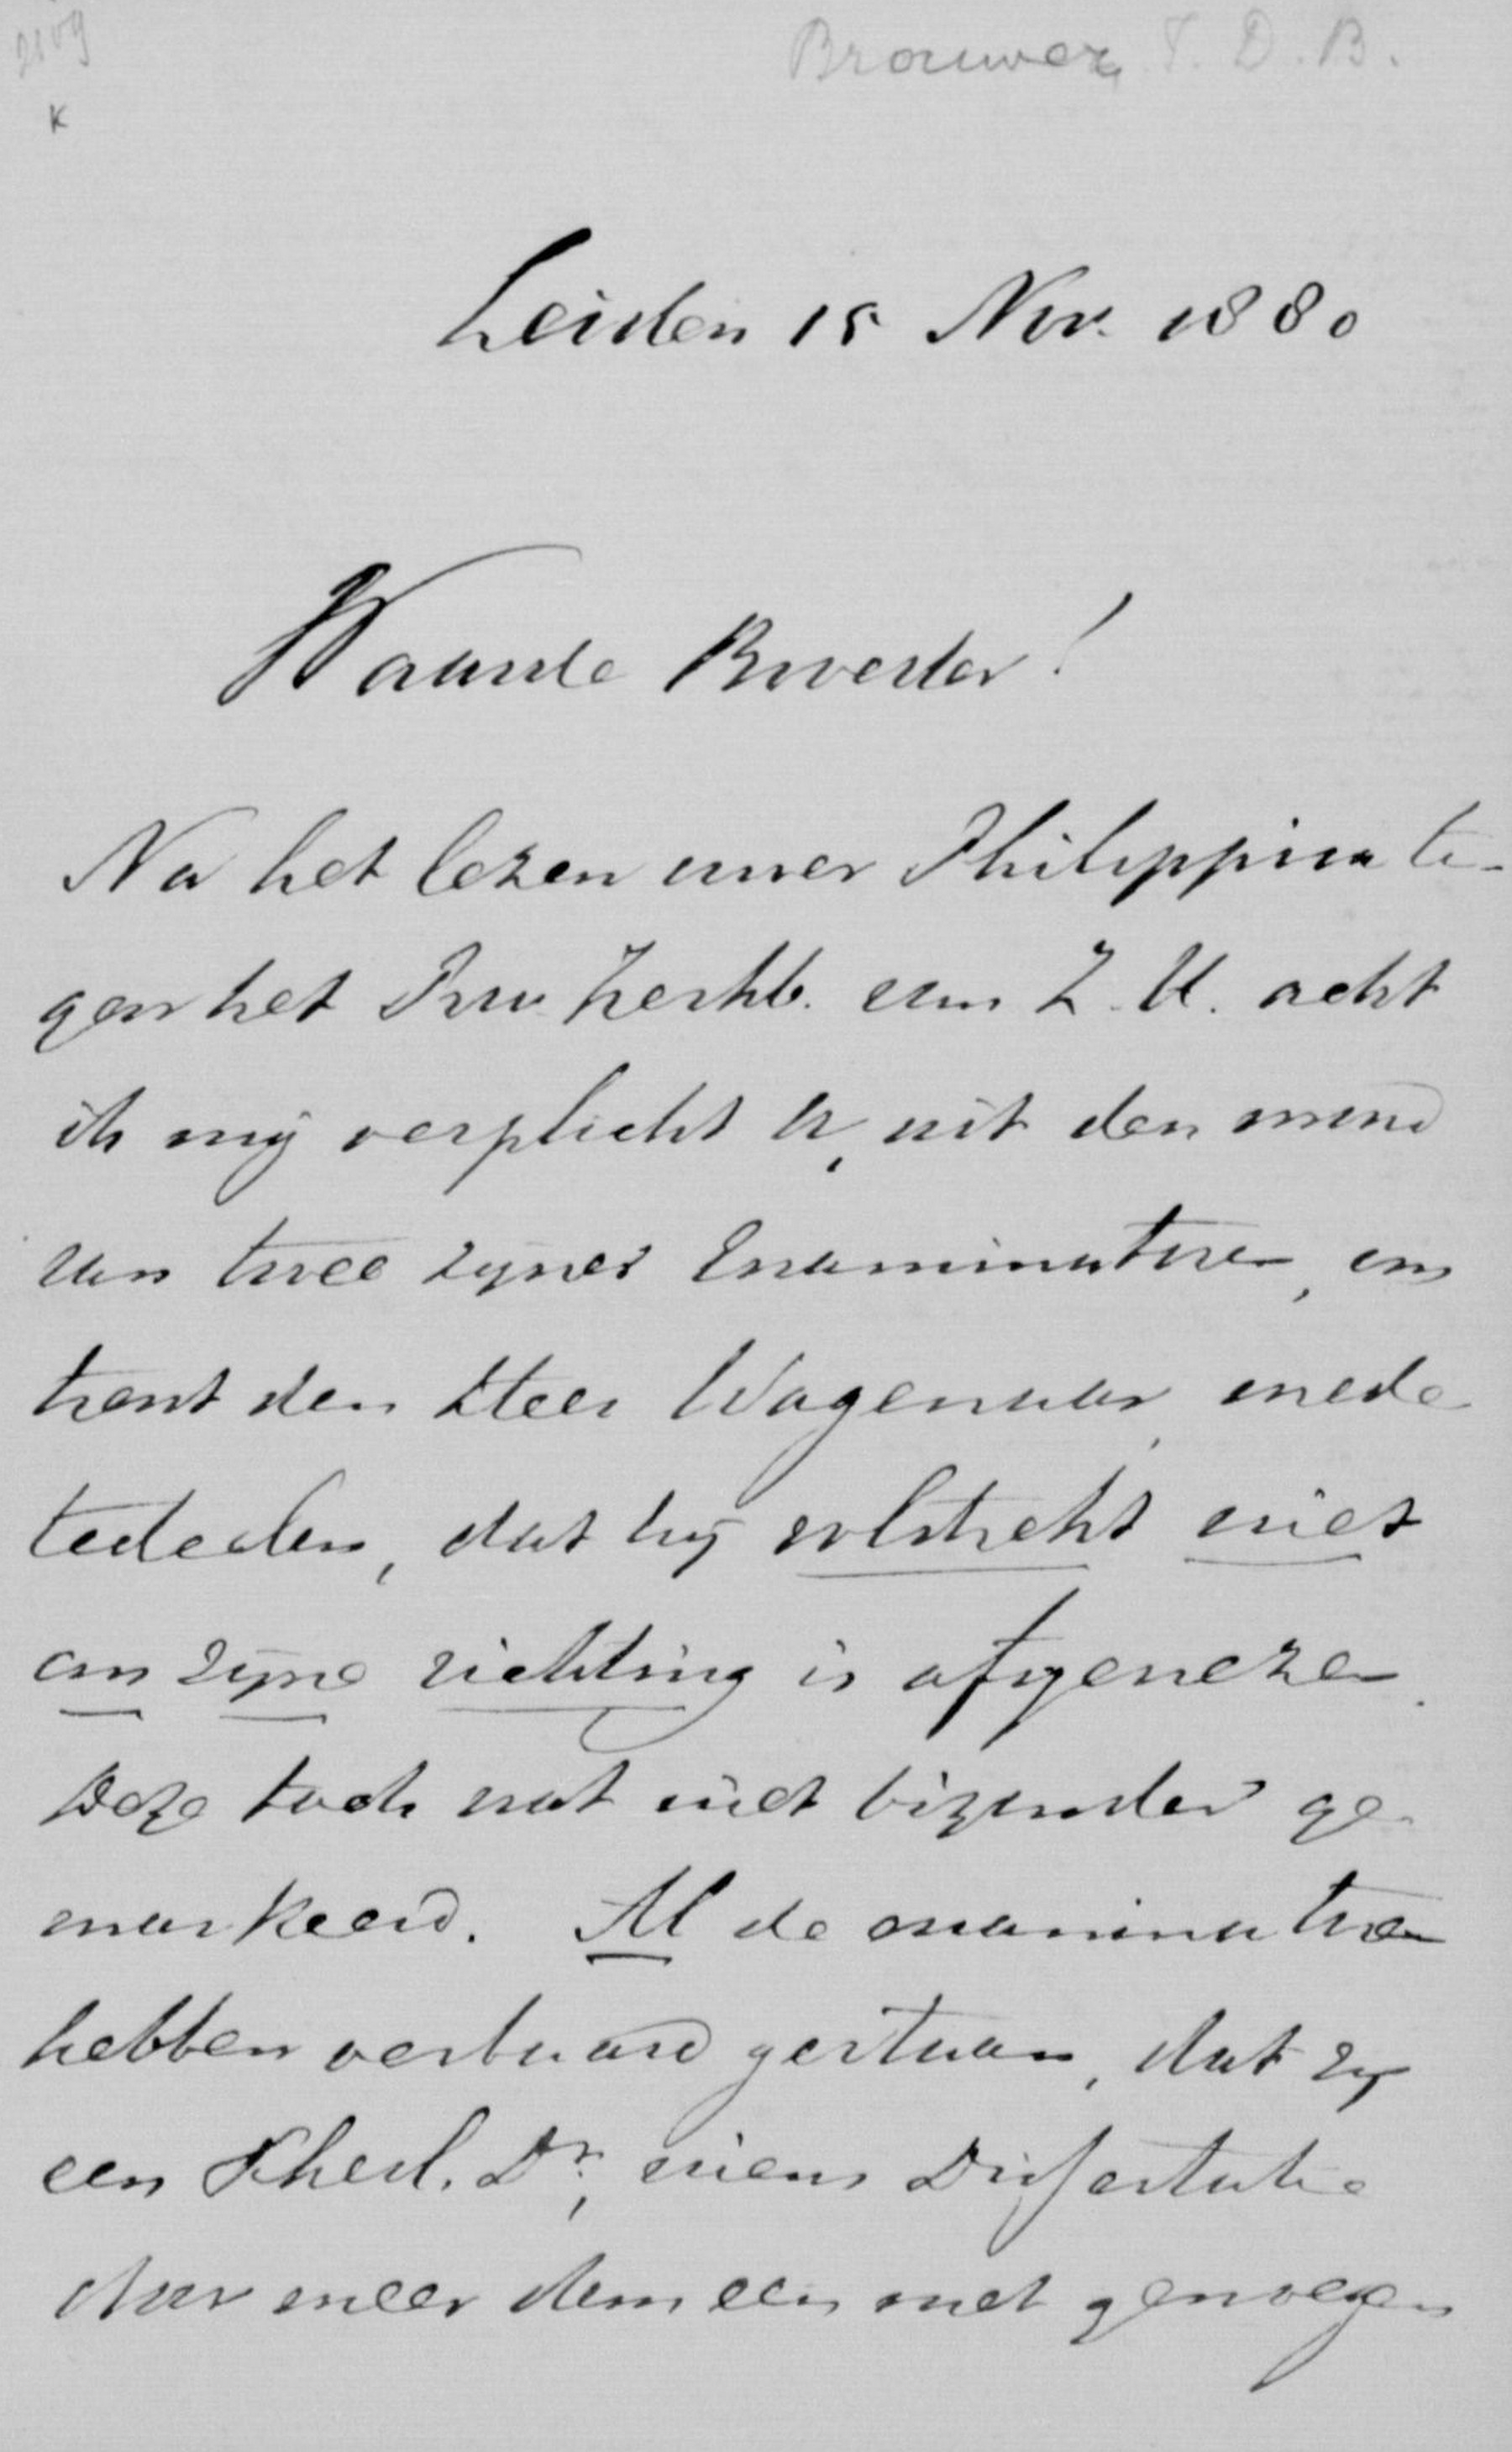 2109
Brouwer, T. D. B.
K
Leiden 15 Nov. 1880
Waarde Broeder!
Na het lezen uwer Philippica te-
gen het Prov. Kerkb. van Z. H. acht
ik mij verplicht U, uit den mond
van twee zyner Examinatoren, om
trent den Heer Wagenaar, mede
tedeelen, dat hij volstrekt niet
om zijne richting is afgewezen.
Deze toch was niet bizonder ge-
markeerd. Al de examinatoren
hebben verbaasd gestaan, dat zij
een Theol. Dr, wiens Dissertatie
door meer dan een met genoegen